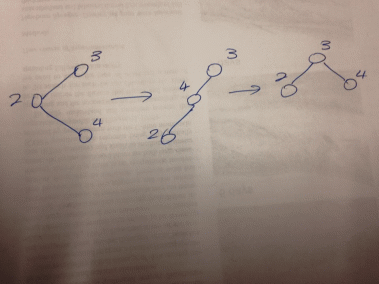 3
2
4
3
4
2
3
2
4